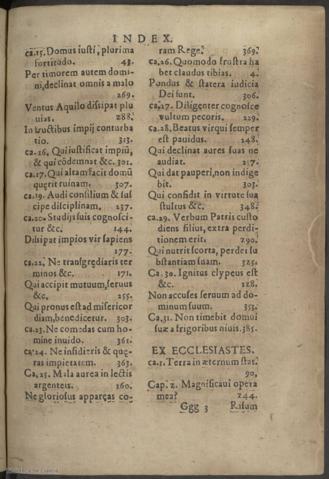 INDEX.
ca.15. Domus iusti, plurima
fortitudo. 43.
Per timorem autem domi-
ni, declinat omnis a malo
269.
Ventus Aquilo dissipat plu
uias. 288.
In fructibus impij conturba
tio. 313.
ca.16. Qui iustificat impiũ,
& qui cõdemnat &c. 301.
ca.17. Qui altam facit domũ
quęrit ruinam. 307.
ca.19. Audi consilium & sus
cipe disciplinam. 237.
ca.20. Studijs suis cognosci-
tur &c. 144.
Dissipat impios vir sapiens
177.
ca.22. Ne transgrediaris ter
minos &c. 171.
Qui accipit mutuum, seruus
&c. 255.
Qui pronus est ad misericor
diam, benedicetur. 303.
ca.23. Ne comedas cum ho-
mine inuido. 361.
ca.24. Ne insidieris & quę-
ras impietatem. 363.
Ca,25. Mala aurea in lectis
argenteis. 160.
Ne gloriosus apparęas co-
ram Rege. 369.
ca.26. Quomodo frustra ha
bet claudus tibias. 4.
Pondus & statera iudicia
Dei sunt. 306.
ca.27. Diligenter cognosce
vultum pecoris. 229.
ca.28. Beatus vir qui semper
est pauidus. 248.
Qui declinat aures suas ne
audiat. 217.
Qui dat pauperi, non indige
bit. 303.
Qui confidit in virtute sua
stultus &c. 348.
ca.29. Verbum Patris custo
diens filius, extra perdi-
tionem erit. 290.
Qui nutrit scorta, perdet su
bstantiam suam. 325.
Ca.30. Ignitus clypeus est
&c. 128.
Non accuses seruum ad do-
minum suum. 353.
Ca,31. Non timebit domui
suæ a frigoribus niuis. 385.
EX ECCLESIASTES.
ca.1. Terra in æternum stat.
90,
Cap. 2. Magnificaui opera
mea? 244.
Ggg 3 Risum